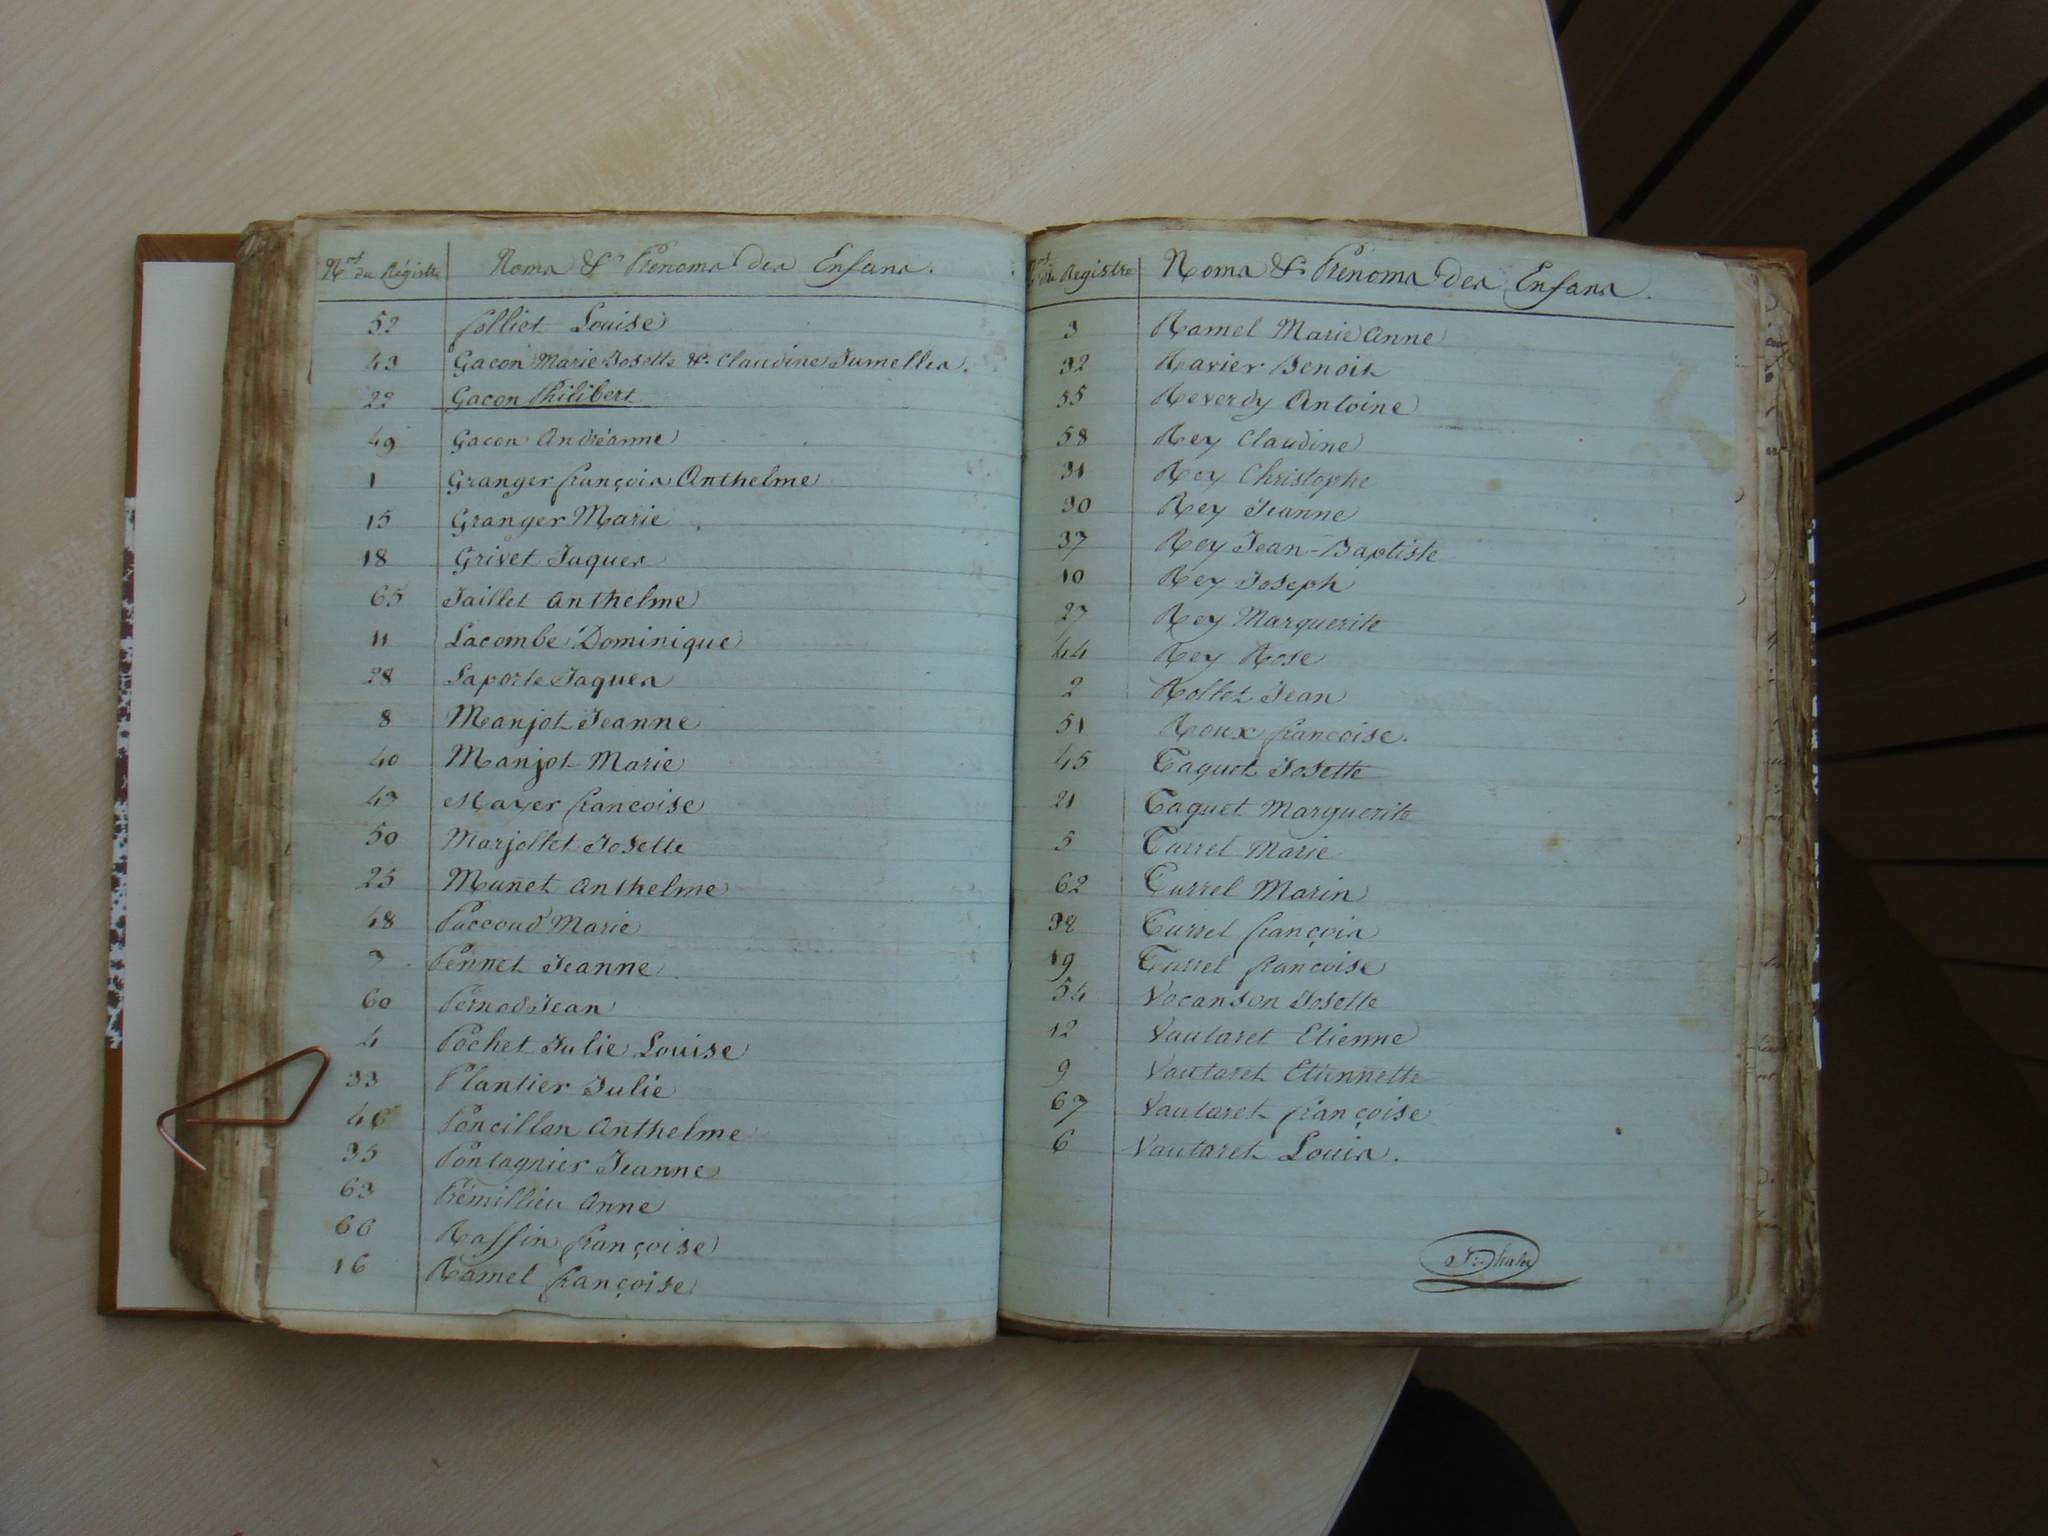 Nos. du Régistre Noms & Prénoms des Enfans.
52 folliet Louise
43 Gacon Marie Josette & Claudine Jumelles.
22 Gacon Philibert
49 Gacon Andréanne
1 Granger françois Anthelme
15 Granger Marie
18 Grivet Jaques
65 Jaillet Anthelme
11 Lacombe Dominique
28 Laporte Jaques
8 Manjot Jeanne
40 Manjot Marie
47 Mayer francoise
50 Marjollet Josette
25 Munet Anthelme
48 Paccoud Marie
7 Pennet Jeanne
60 Pernod Jean
4 Pochet Julie Louise
33 Plantier Julie
46 Poncillon Anthelme
35 Pontagnier Jeanne
63 Prémillieu Anne
66 Raffin françoise
16 Ramel françoise
Nos. du Registre Noms & Prénoms des Enfans.
3 Ramel Marie Anne
32 Ravier Benoit
55 Reverdy Antoine
58 Rey Claudine
31 Rey Christophe
30 Rey Jeanne
37 Rey Jean-Baptiste
10 Rey Joseph
27 Rey Marguerite
44 Rey Rose
2 Rollet Jean
51 Roux francoise.
45 Taquet Josette
21 Taquet Marguerite
5 Turrel Marie
62 Turrel Marin
38 Turrel françois
19 Turrel francoise
54 Vocanson Josette
12 Vautaret Etienne
9 Vautaret Etiennette
67 Vautaret françoise
6 Vautaret Louis.